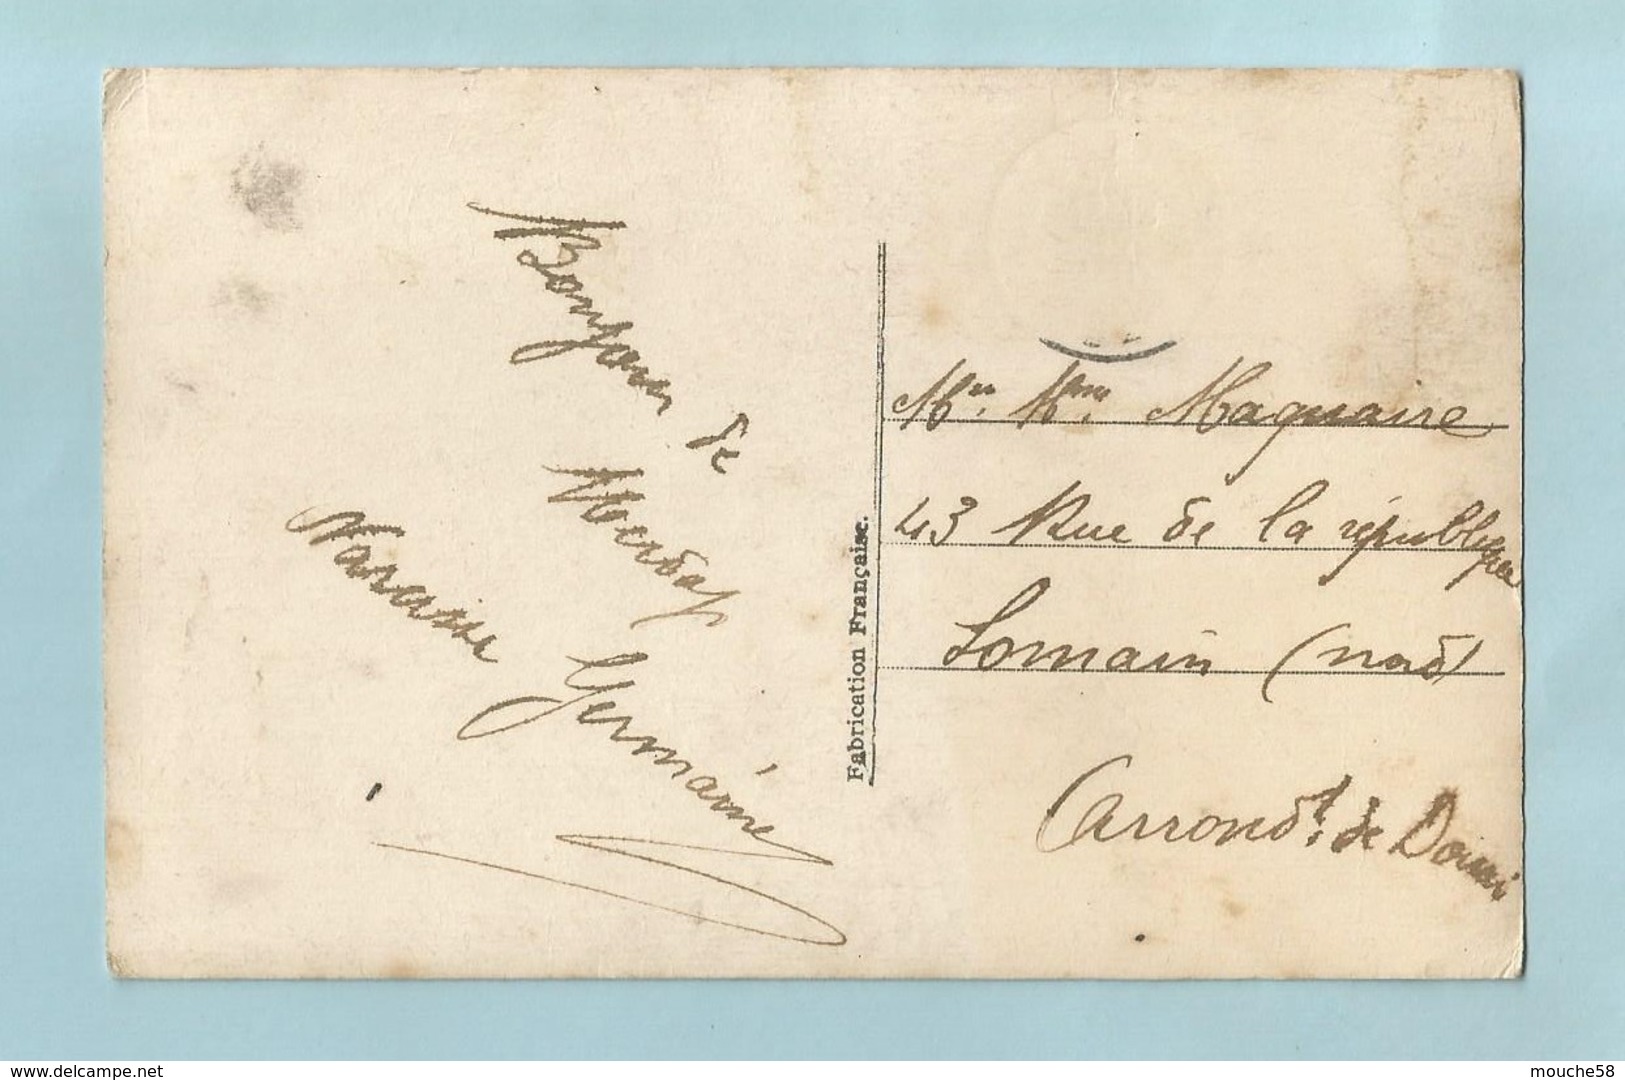 Bonjour de
Narcisse Germaine
Fabrication Française.
Mr. Mme. Maquaire
43 Rue de la république
Somain (nord)
Arrondt. de Douai
www.delcampe.net
mouche58